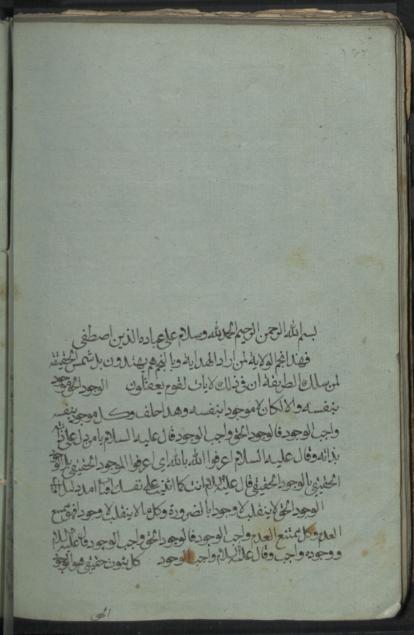 بسم الله الرحمن الرحيم الحمد لله وسلام على عباده الذين اصطفى
فهذا نجم الولاية لمن اراد الهداية وبالنجم هم يهتدون بل شمس الحقيقة
لمن سلك الطريقة ان في ذلك لايات لقوم يعقلون الوجود الحق موجود
بنفسه والا لكان لا موجودا بنفسه وهذا خلف وكل موجود بنفسه
واجب الوجود فالوجود الحق واجب الوجود قال عليه السلام يا من دل على ذاته
بذاته وقال عليه السلام اعرفوا الله بالله اى اعرفوا الموجود الحقيقى بالوجود
الحقيقى بالوجود الحقيقى قال عليه السلام انت كما اثنيت على نفسك
الوجود الحق لا ينقلب لا وجودا بالضرورة وكل ما لا ينقلب لا وجودا فهو ممتنع
العدم وكل ممتنع العدم واجب الوجود فالوجود الحق واجب الوجود قال عليه السلام
ووجوده واجب وقال عليه السلام واجب الوجود كل ثبوت حقيقى هو الوجود
الحق